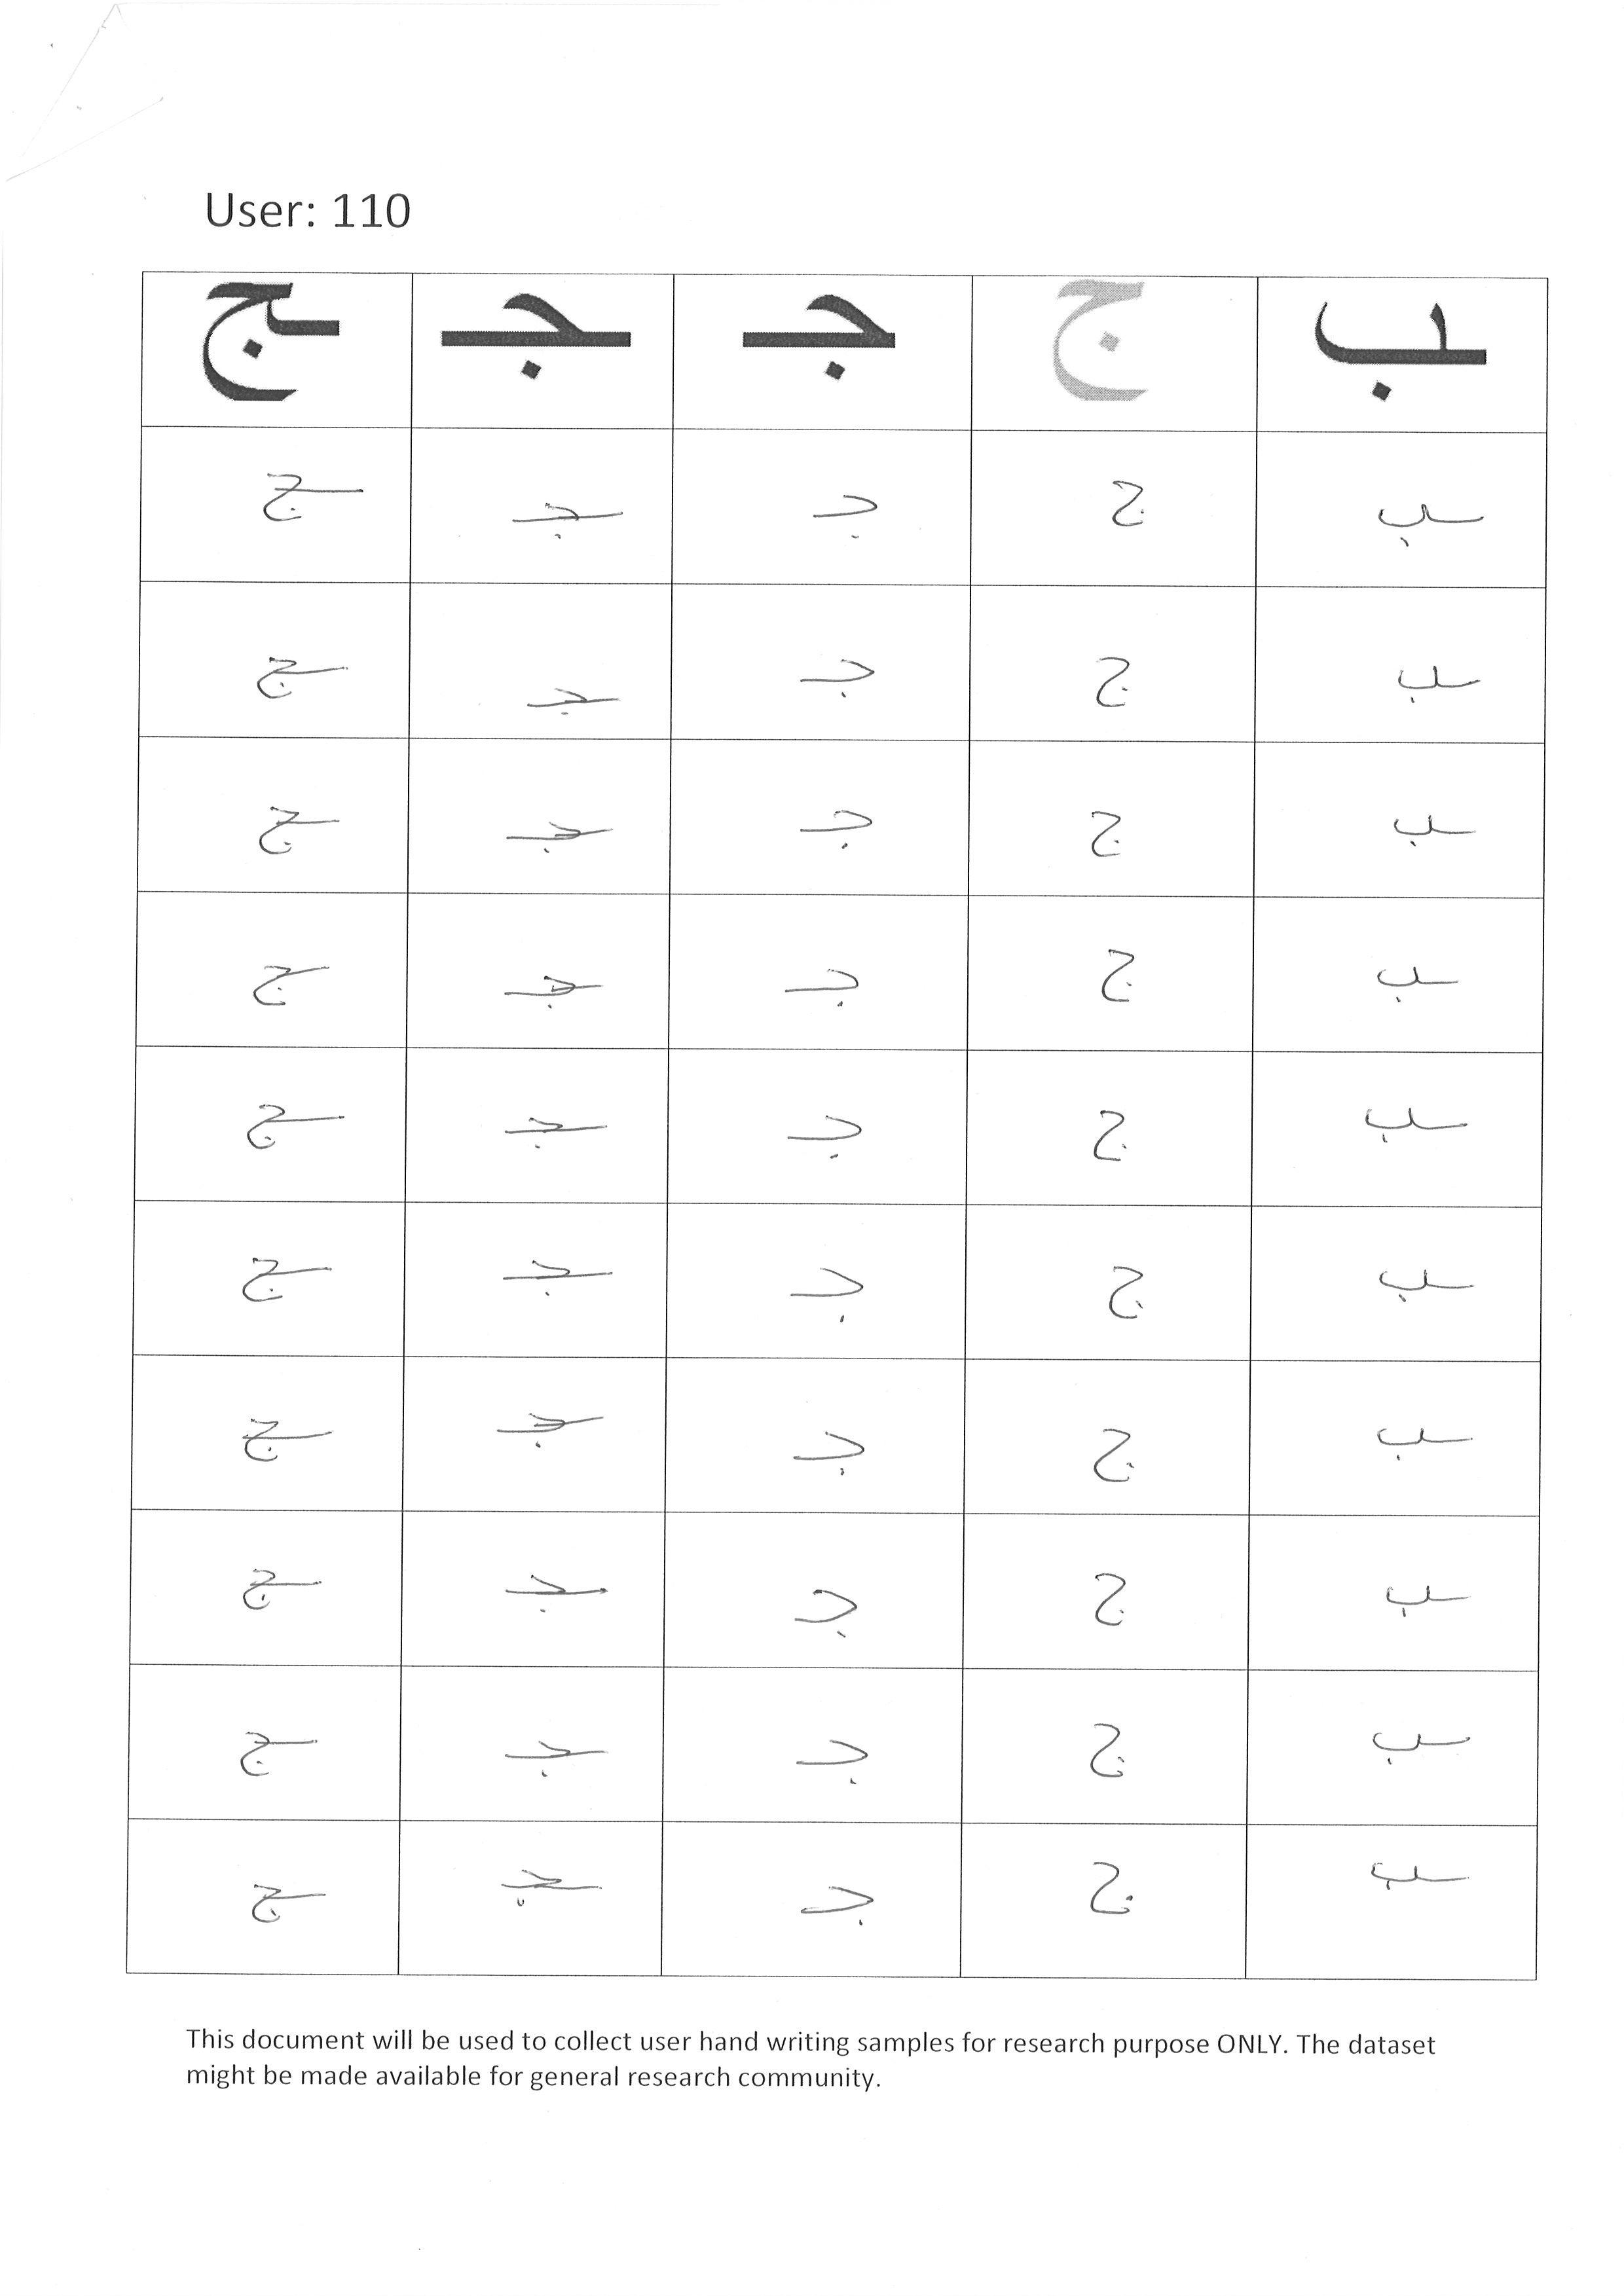 User: 110
ـب ج جـ ـجـ ـج
ـب ج جـ ـجـ ـج
ـب ج جـ ـجـ ـج
ـب ج جـ ـجـ ـج
ـب ج جـ ـجـ ـج
ـب ج جـ ـجـ ـج
ـب ج جـ ـجـ ـج
ـب ج جـ ـجـ ـج
ـب ج جـ ـجـ ـج
ـب ج جـ ـجـ ـج
ـب ج جـ ـجـ ـج
This document will be used to collect user hand writing samples for research purpose ONLY. The dataset
might be made available for general research community.